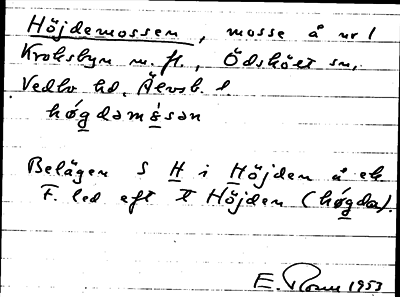 Höjdemossen, mosse å nr 1
Kroksbyn m. fl., Ödskölt sn,
Vedbo hd, Älvsb. l.
hǿgdəmɛ́sən
Belägen S H i Höjden å ek
F. led eft. tt Höjden (hǿgda).
E. 1953